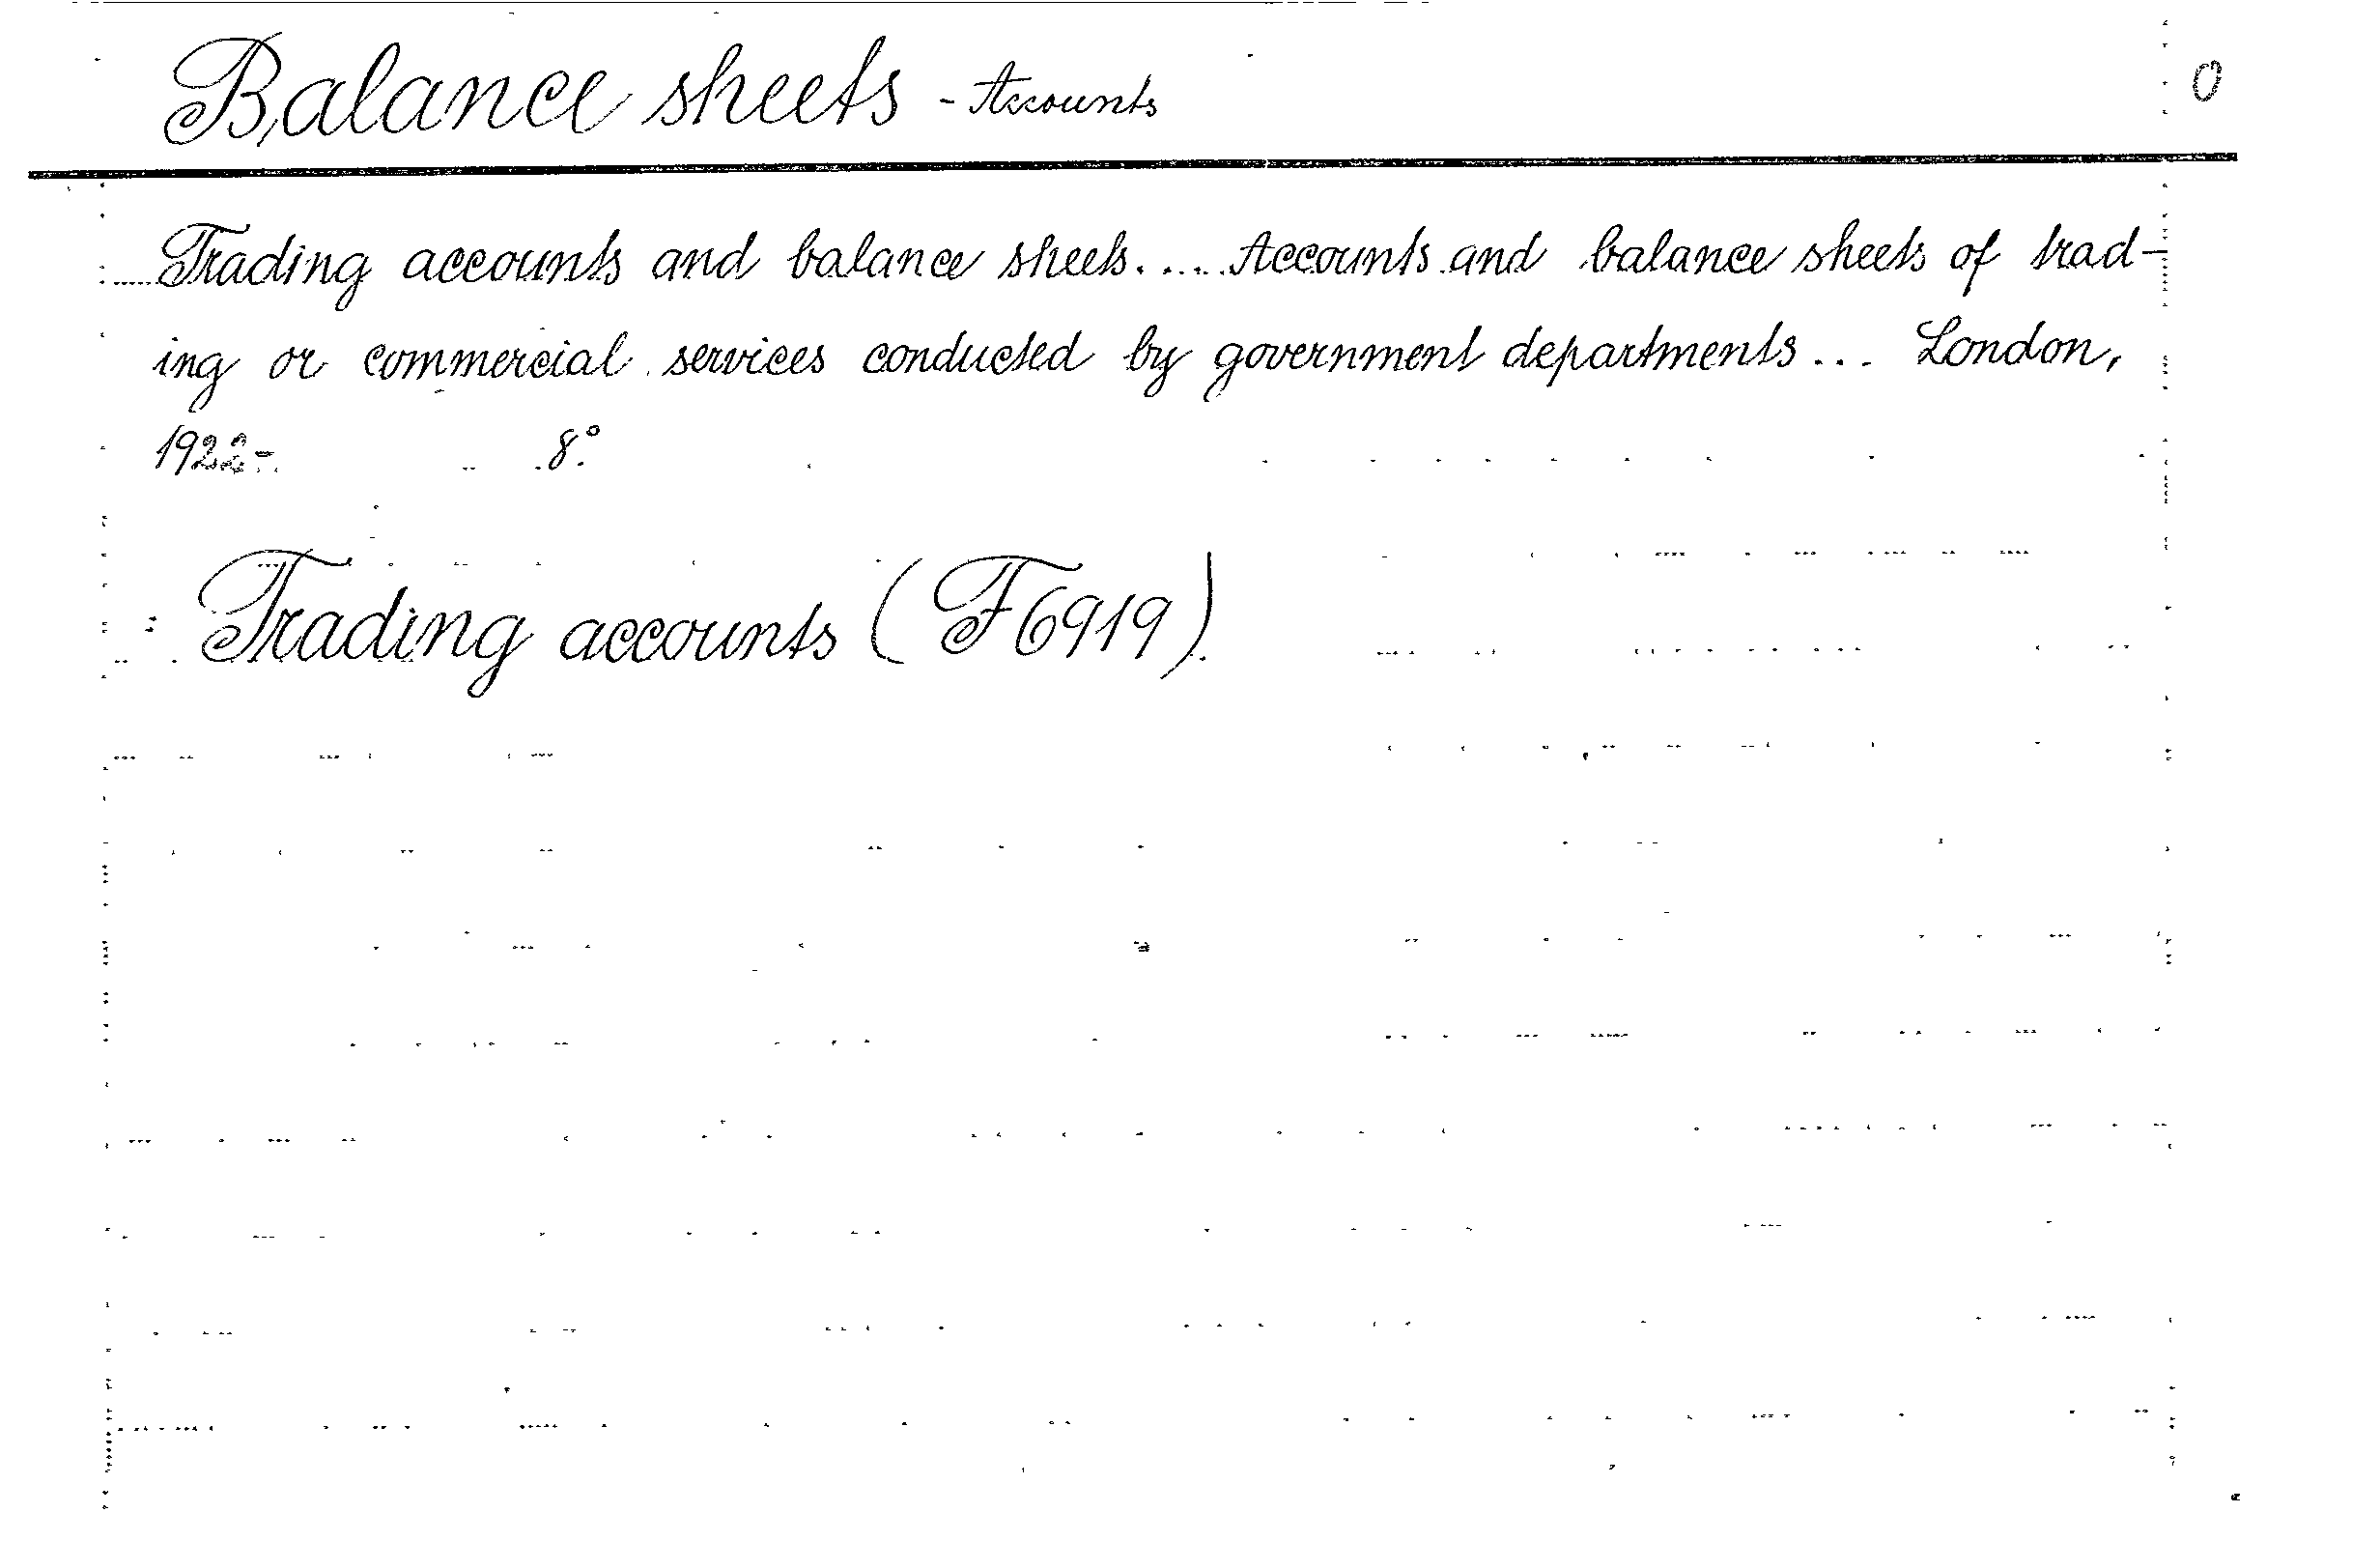 Balance sheets - Accounts 0
Trading accounts and balance sheets. ... Accounts and balance sheets of trad-
ing or commercial services conducted by government departments ... London,
1922-. 8.°
Trading accounts (F6919).